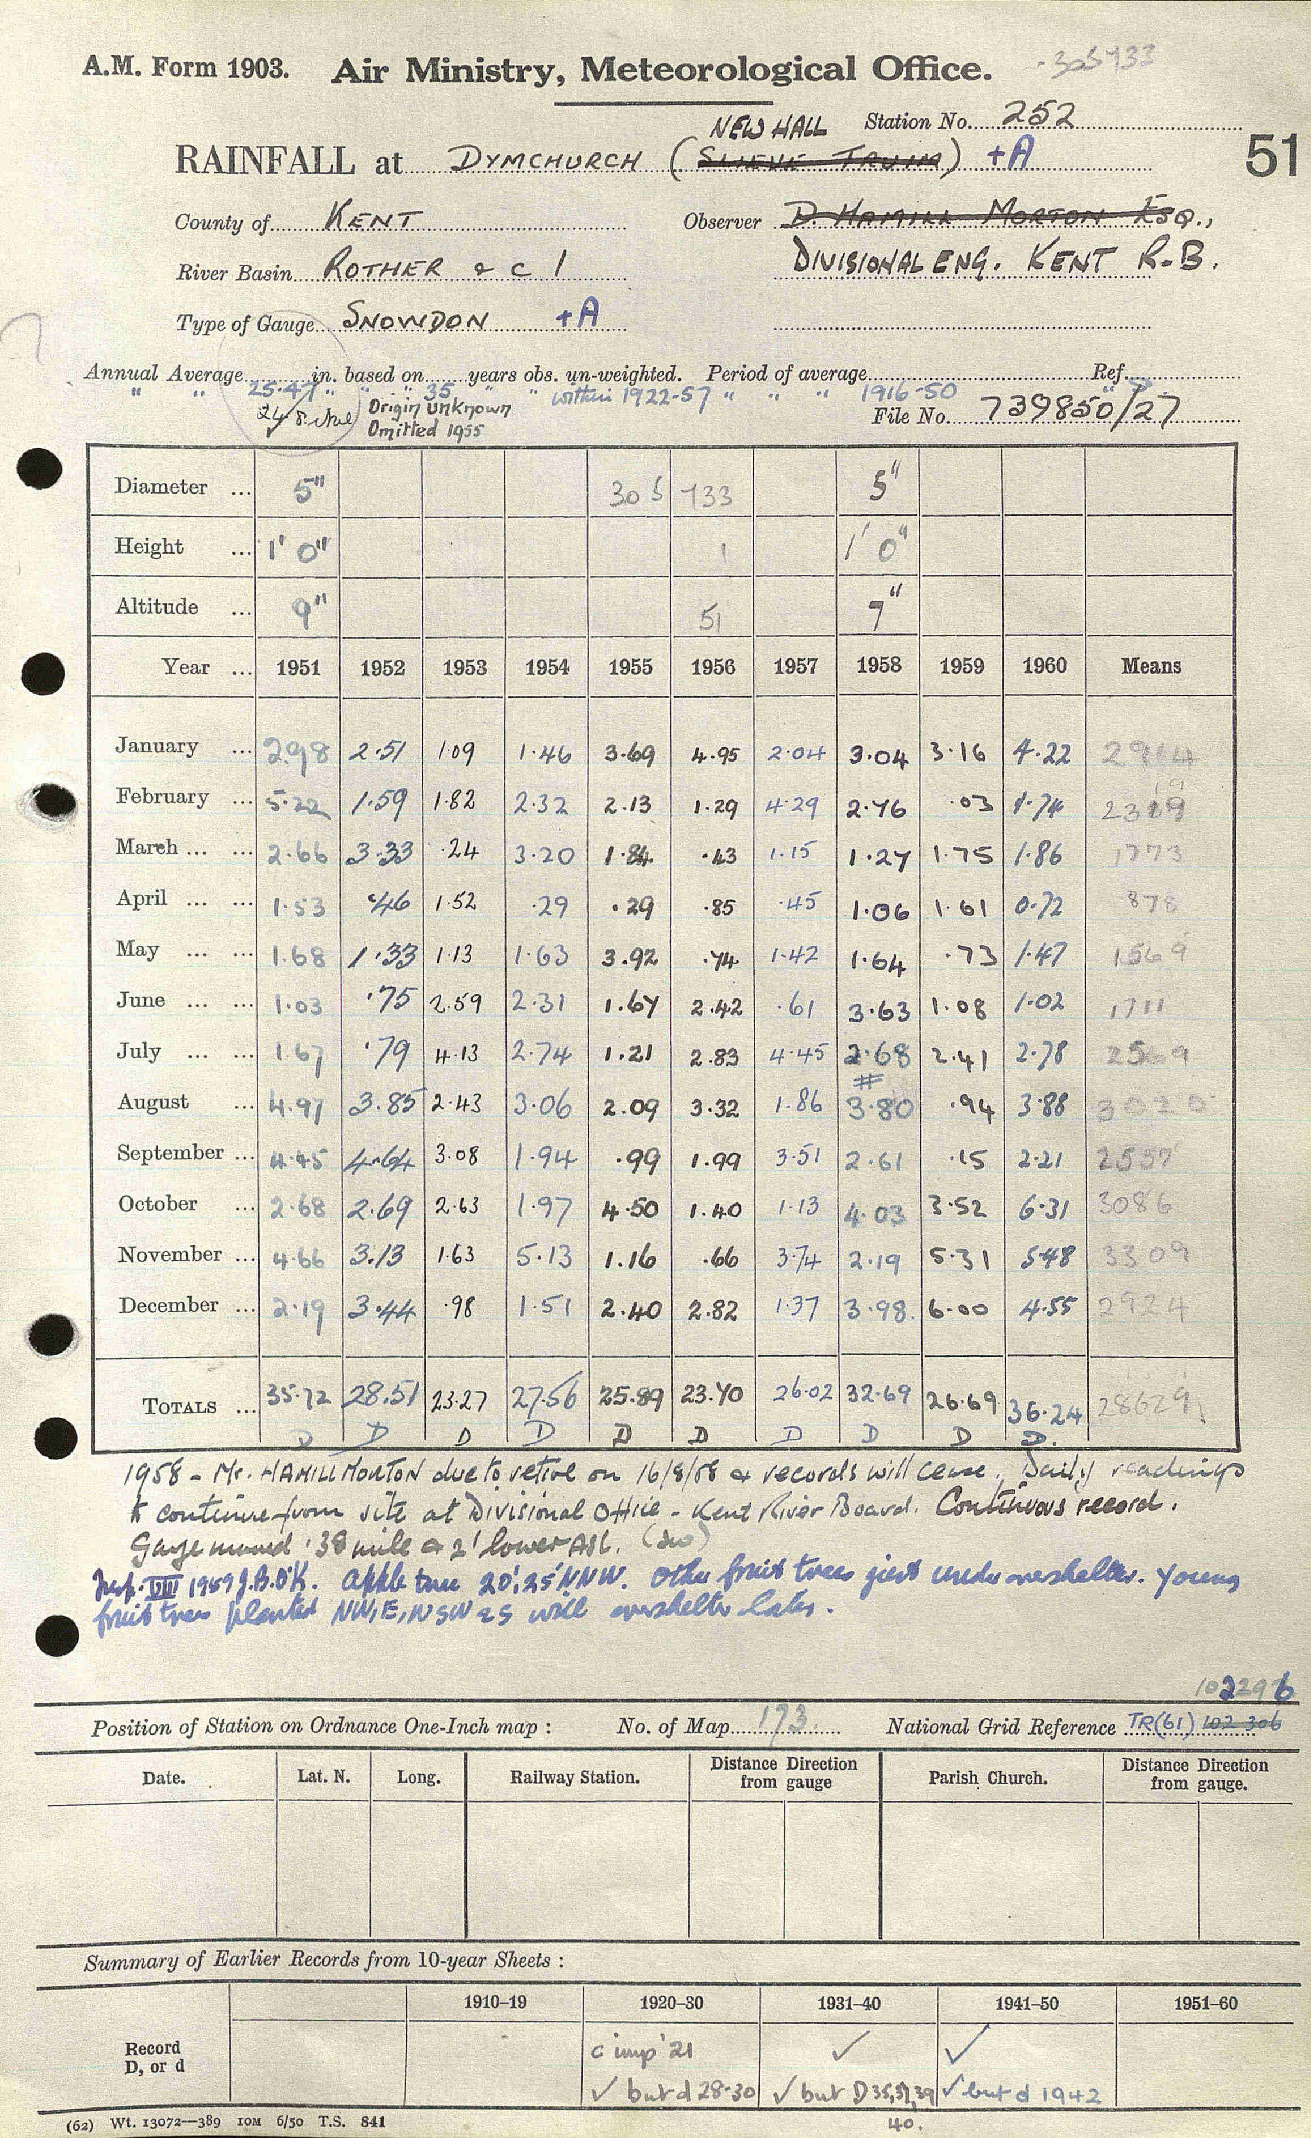 A.M. Form 1903. Air Ministry, Meteorological Office. 305733
NEW HALL Station No. 252
RAINFALL at DYMCHURCH (SLIEVE TRUIM) +A 51
County of KENT Observer D. HAMILL MORTON ESQ.,
River Basin ROTHER & C 1 DIVISIONAL ENG. KENT R.B.
Type of Gauge SNOWDON +A
Annual Average in. based on years obs. un-weighted. Period of average Ref.
" " 25.47 " " 35 " " within 1922-57 " " " 1916-50 " "
Origin Unknown File No. 739850/27
Omitted 1955
Diameter ... 5" 305 733 5"
Height ... 1' 0" 1 1' 0"
Altitude ... 9" 51 7"
Year ... 1951 1952 1953 1954 1955 1956 1957 1958 1959 1960 Means
January ... 2.98 2.51 1.09 1.46 3.69 4.95 2.04 3.04 3.16 4.22 2914
February ... 5.22 1.59 1.82 2.32 2.13 1.29 4.29 2.76 .03 1.74 2319
March ... ... 2.66 3.33 .24 3.20 1.84 .43 1.15 1.27 1.75 1.86 1773
April ... ... 1.53 .46 1.52 .29 .29 .85 .45 1.06 1.61 0.72 878
May ... ... 1.68 1.33 1.13 1.63 3.92 .74 1.42 1.64 .73 1.47 1569
June ... ... 1.03 .75 2.59 2.31 1.67 2.42 .61 3.63 1.08 1.02 1711
July ... ... 1.67 .79 4.13 2.74 1.21 2.83 4.45 2.68 2.41 2.78 2569
#
August ... 4.97 3.85 2.43 3.06 2.09 3.32 1.86 3.80 .94 3.88 3020
September ... 4.45 4.64 3.08 1.94 .99 1.99 3.51 2.61 .15 2.21 2557
October ... 2.68 2.69 2.63 1.97 4.50 1.40 1.13 4.03 3.52 6.31 3086
November ... 4.66 3.13 1.63 5.13 1.16 .66 3.74 2.19 5.31 5.48 3309
December ... 2.19 3.44 .98 1.51 2.40 2.82 1.37 3.98 6.00 4.55 2924
TOTALS ... 35.72 28.51 23.27 27.56 25.89 23.70 26.02 32.69 26.69 36.24 28629
D D D D D D D D D D.
1958 - Mr. HAMILL MORTON due to retire on 16/8/58 & records will cease. Daily readings
to continue from site at Divisional Office - Kent River Board. Continuous record.
Gauge moved .38 mile & 2' lower ASL.
Insp. VIII 1959 J.B.O'K. Apple tree 20', 25' NNW. Other fruit trees just under overshelter. Young
fruit trees planted NW, E, WSW 25 will overshelter later.
102296
Position of Station on Ordnance One-Inch map : No. of Map 173. National Grid Reference TR(61) 102 306
Date. Lat. N. Long. Railway Station. Distance Direction from gauge Parish Church. Distance Direction from gauge.
Summary of Earlier Records from 10-year Sheets :
1910–19 1920–30 1931–40 1941–50 1951–60
Record D, or d c imp '21 ✓ ✓
✓ but d 28-30 ✓ but D 35, 37, 39 ✓ but d 1942
40.
(62) Wt. 13072—389 10M 6/50 T.S. 841